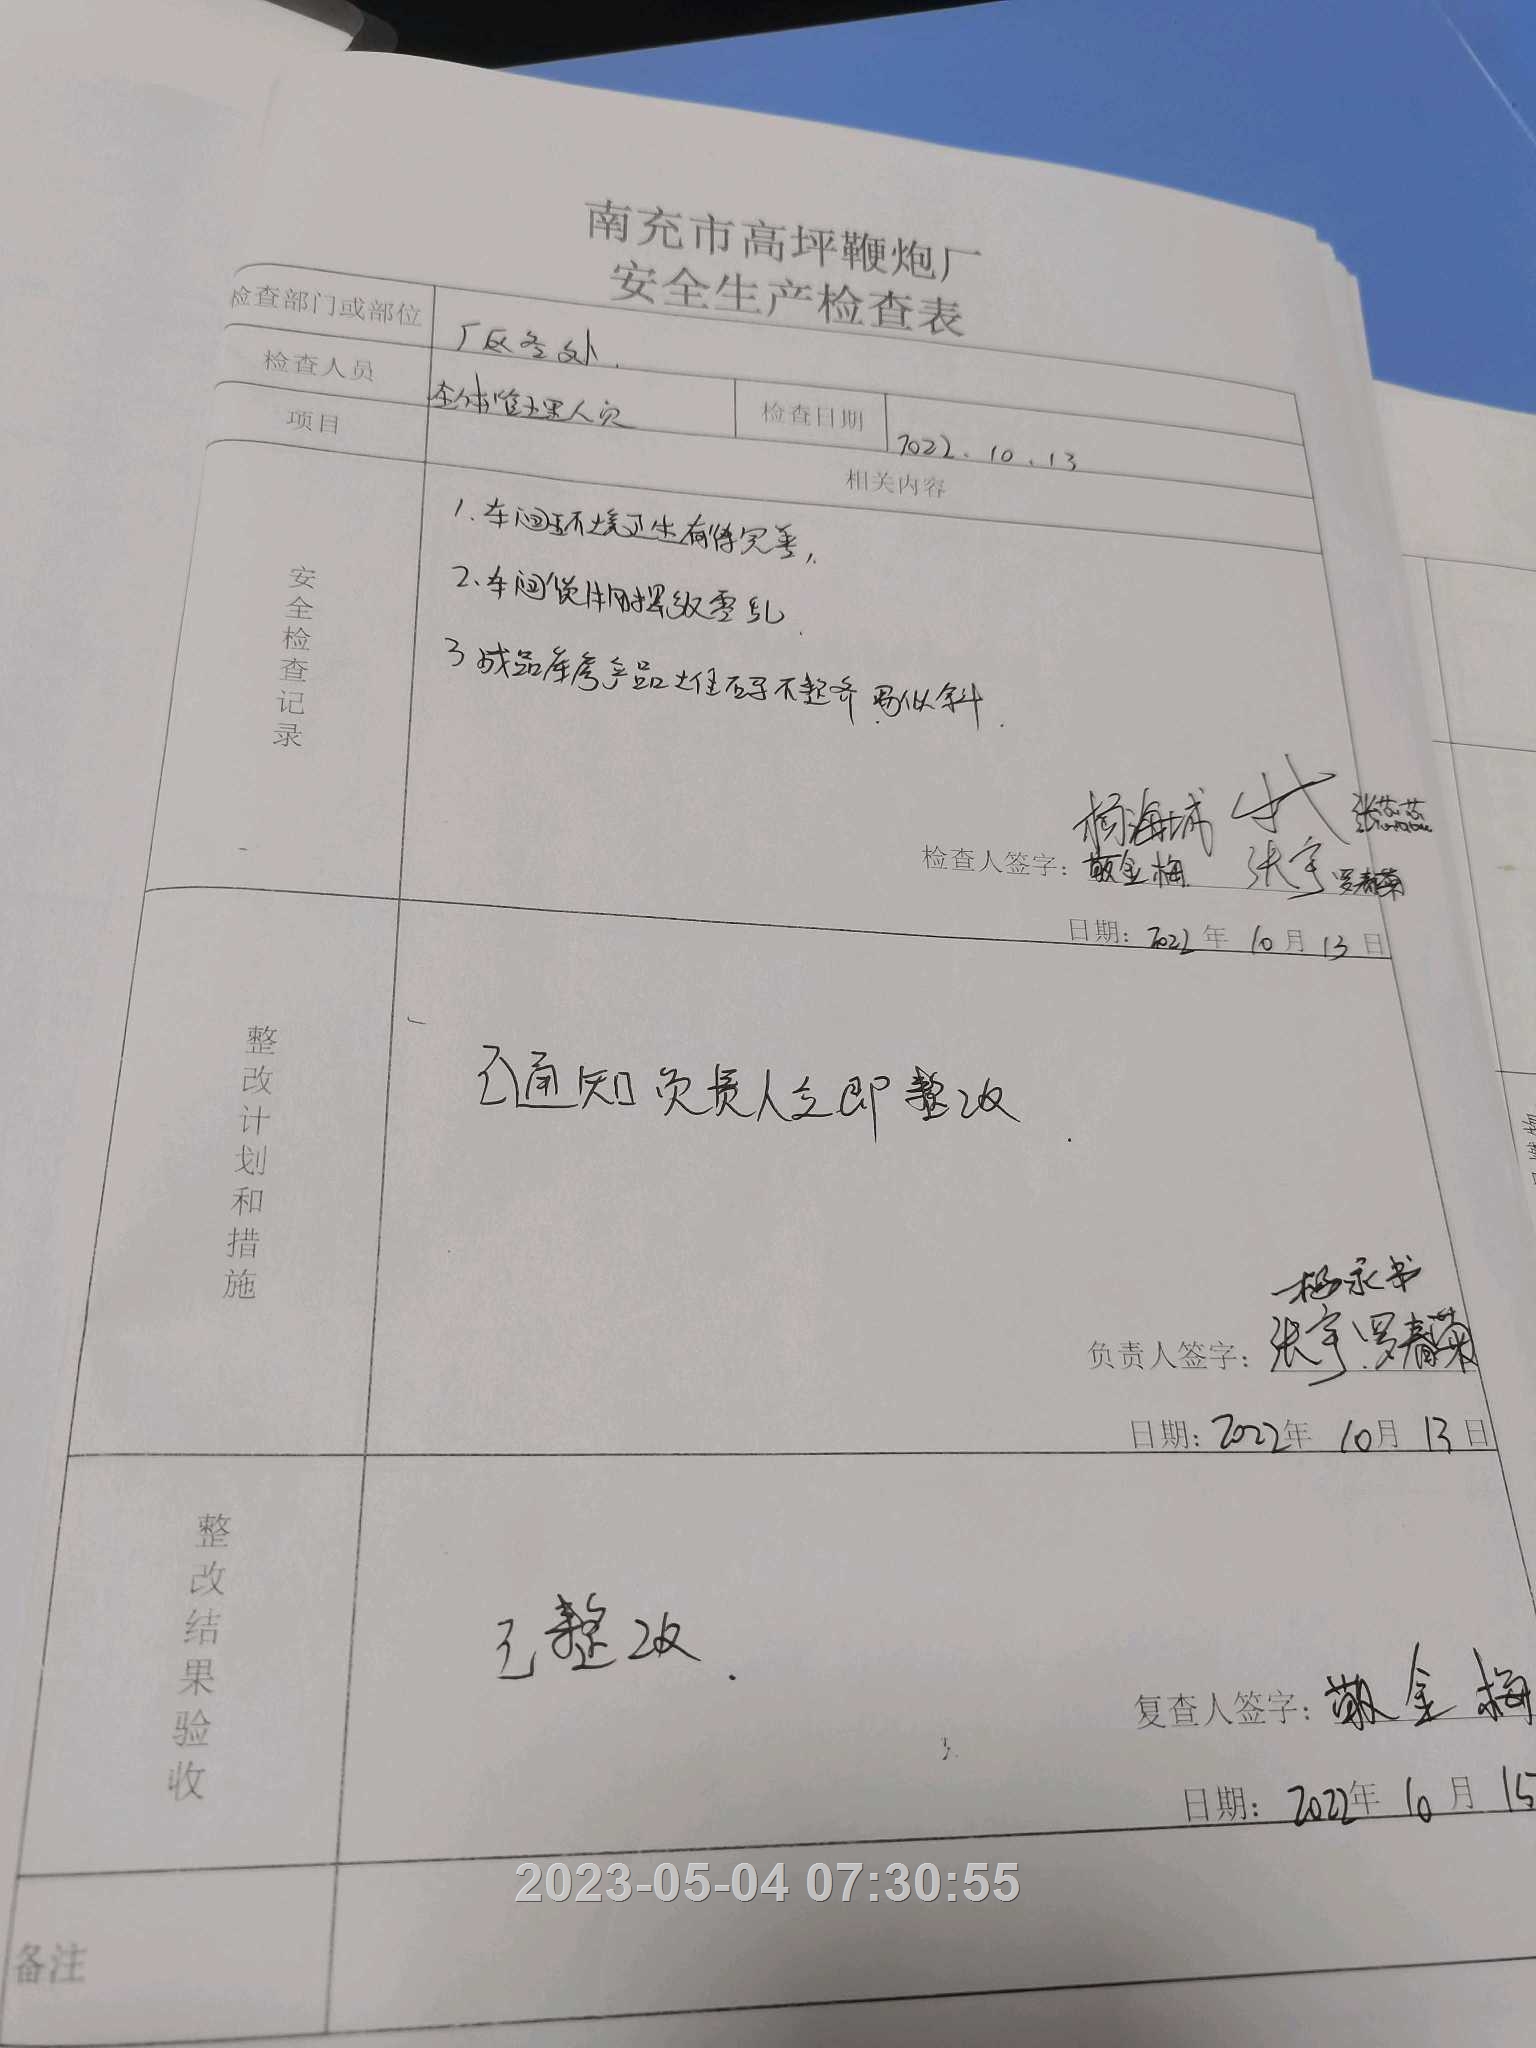 南充市高坪鞭炮厂
安全生产检查表
检查部门或部位 厂区各处.
检查人员 全体管理人员 检查日期 2022.10.13
项目 相关内容
安全检查记录
1.车间环境卫生有待完善,
2.车间使用 零乱.
3 成品库房产品堆码不起齐
杨海城 张蓝蓝
检查人签字: 敬金梅 张宇 罗春菊
日期: 2022年10月13日
整改计划和措施
已通知负责人立即整改.
杨永书
负责人签字: 张宇 罗春菊
日期: 2022年10月13日
整改结果验收
已整改.
复查人签字: 敬金梅
日期: 2022年10月15
2023-05-04 07:30:55
备注